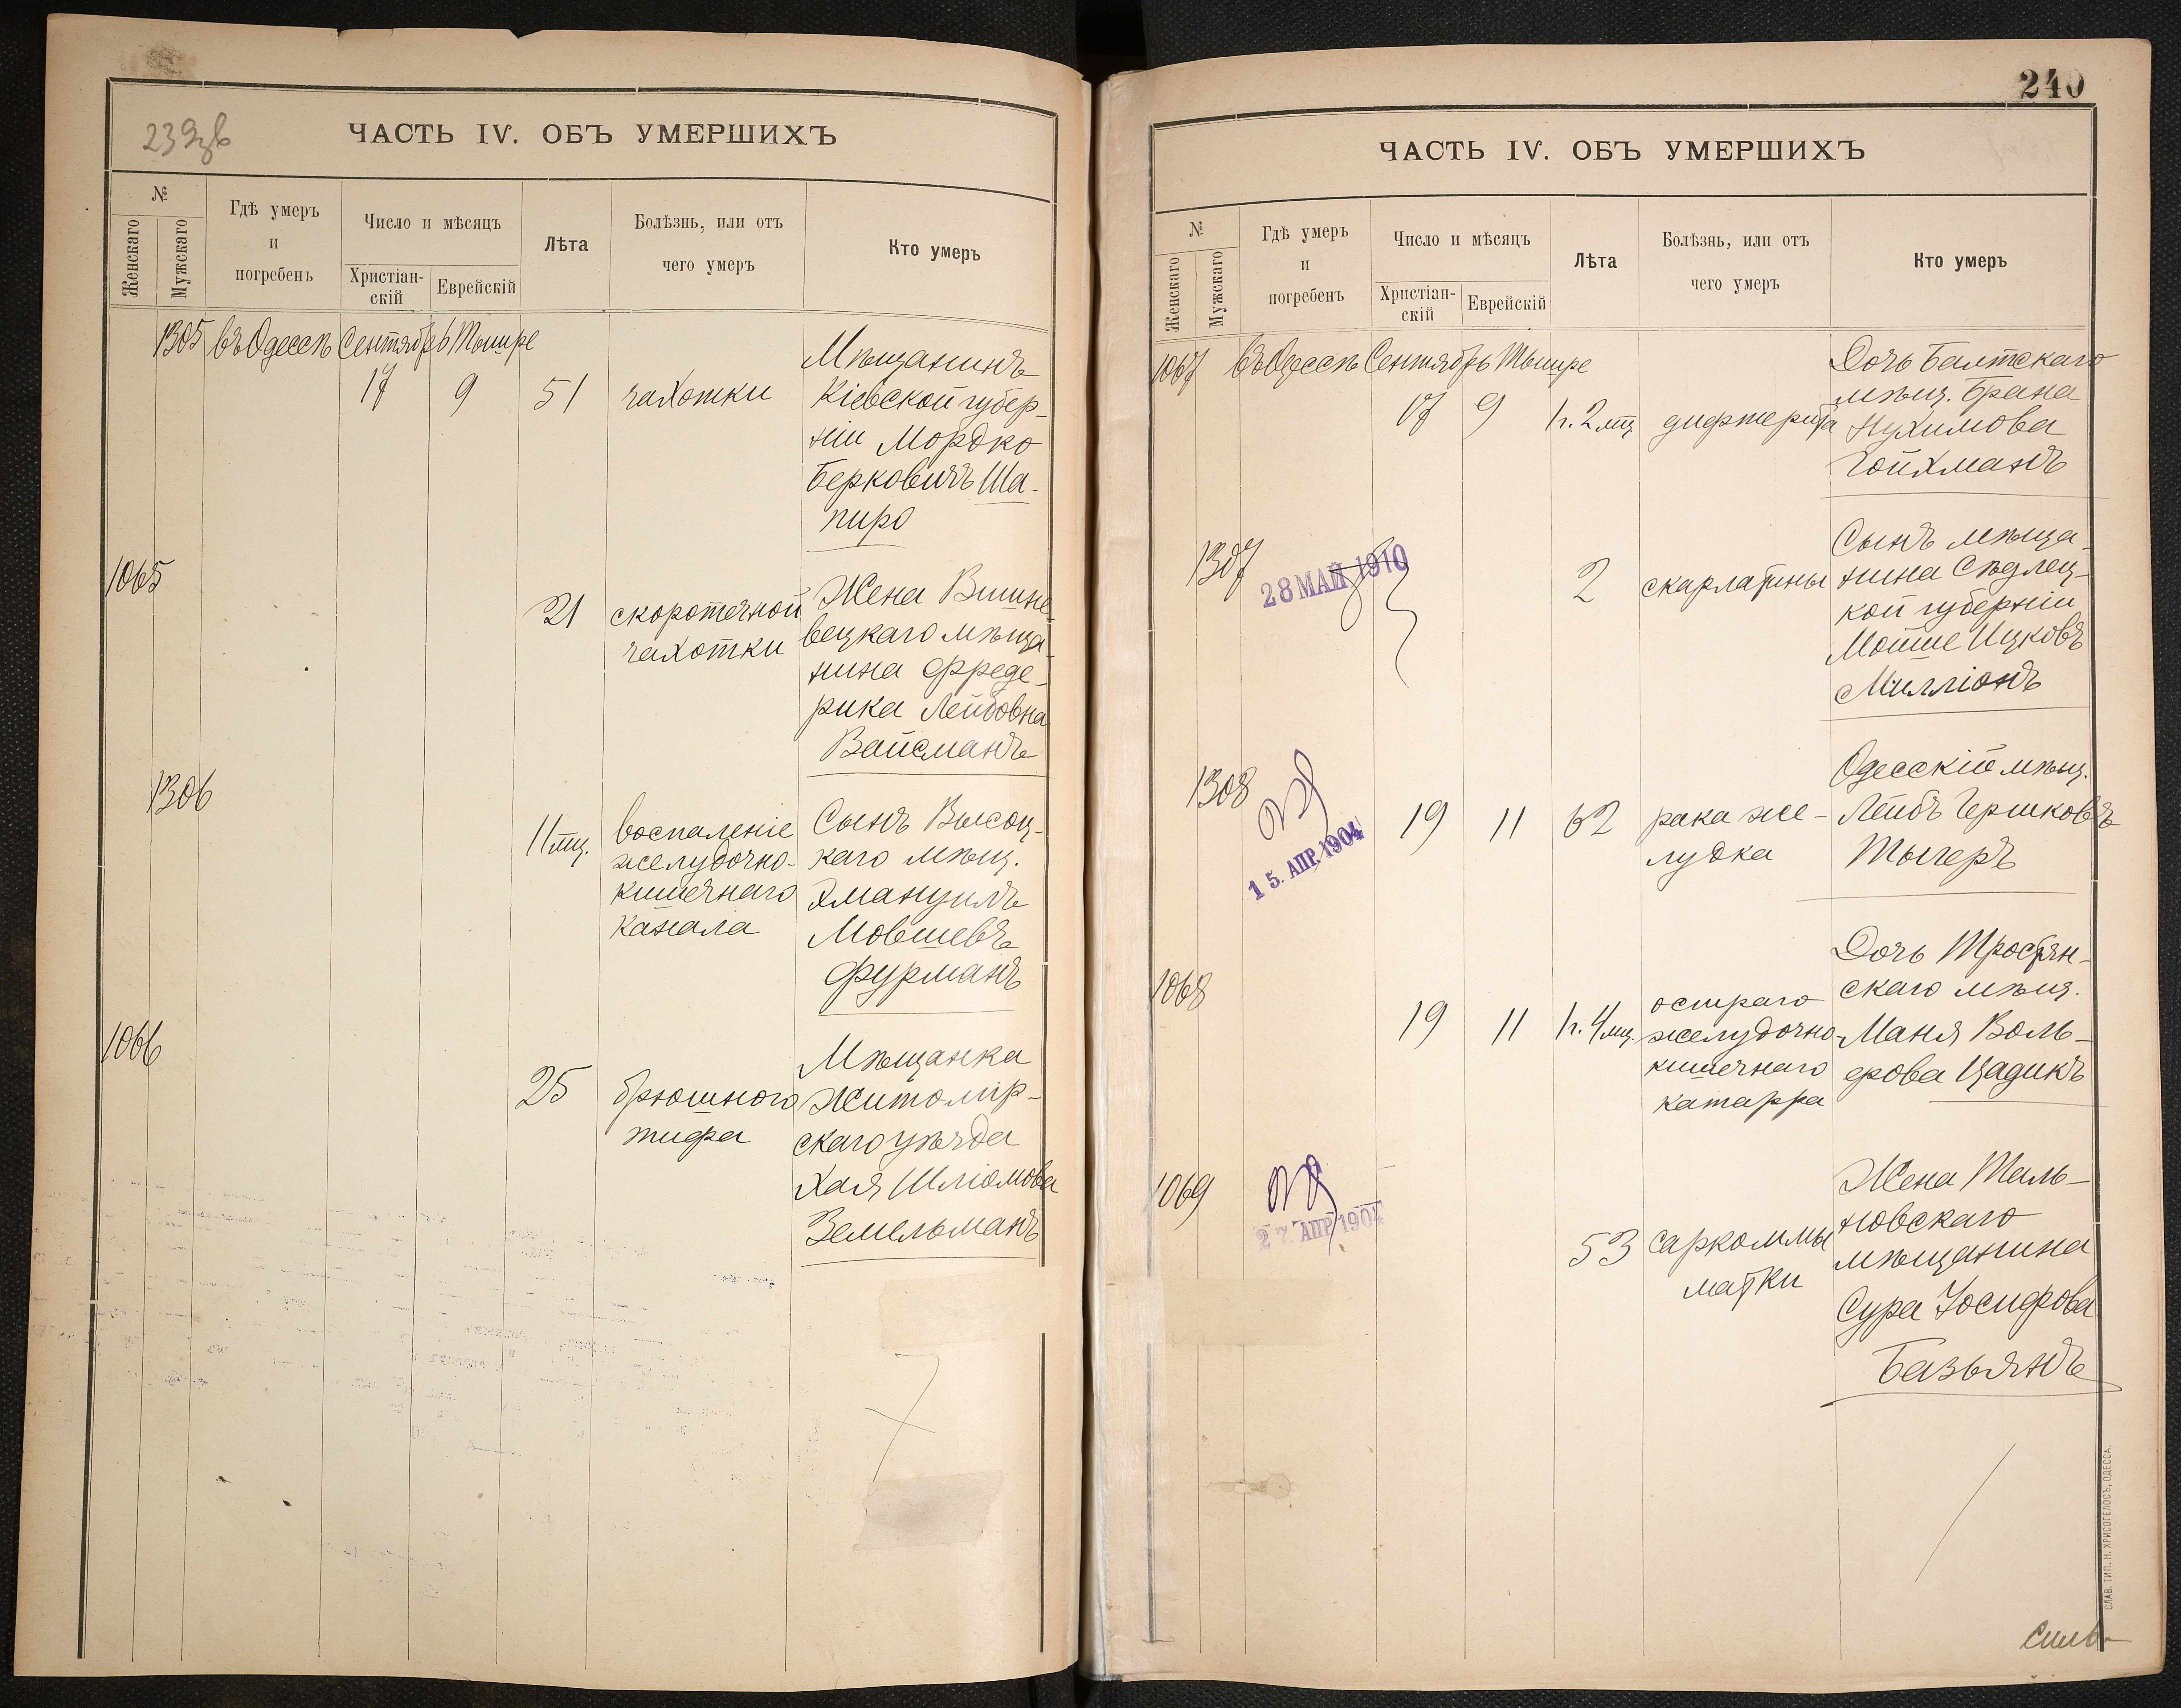 239 об
ЧАСТЬ IV. ОБЪ УМЕРШИХЪ
№
Женскаго
Мужескаго
Гдѣ умеръ
и
погребенъ
Число и мѣсяцъ
Христіан-
скій
Еврейскій
Лѣта
Болѣзнь, или отъ
чего умеръ
Кто умеръ
1305 въ Одессѣ Сентябрь Тышре
17 9 51 чахотки
Мѣщанинъ
Кіевской губер-
ніи Мордко
Берковичъ Ша-
пиро
1065
21 скоротечной
чахотки
Жена Вишне-
вецкаго мѣща-
нина Фреде-
рика Лейбовна
Вайсманъ
1306
11 мц. воспаленіе
желудочно-
кишечнаго
канала
Сынъ Высоц-
каго мѣщ.
Эмануилъ
Мовшевъ
Фурманъ
1066
25 брюшного
тифа
Мѣщанка
Житомір-
скаго уѣзда
Хая Шліомова
Земельманъ
240
ЧАСТЬ IV. ОБЪ УМЕРШИХЪ
№
Женскаго
Мужскаго
Гдѣ умеръ
и
погребенъ
Число и мѣсяцъ
Христіан-
скій
Еврейскій
Лѣта
Болѣзнь, или отъ
чего умеръ
Кто умеръ
1067 въ Одессѣ Сентябрь Тышре
17 9 1 г. 2 мц дифтерита
Дочь Балтскаго
мѣщ. Брана
Нухимова
Гойхманъ
1307
28 МАЙ 1910
2 скарлатины
Сынъ мѣща-
нина Сѣдлец-
кой губерніи
Мошше Ицковъ
Милліонъ
1308
15. АПР. 1904
19 11 62 рака же-
лудка
Одесскій мѣщ.
Лейбъ Гершковъ
Тыгеръ
1068
19 11 1 г. 4 мц. остраго
желудочно-
кишечнаго
катарра
Дочь Тростян-
скаго мѣщ.
Маня Воль-
ерова Цадикъ
1069
27. АПР. 1904
53 саркоммы
матки
Жена Таль-
новскаго
мѣщанина
Сура Іосифова
Базьянъ
СЛАВ. ТИП. Н. ХРИСОГЕЛОСЪ, ОДЕССА.